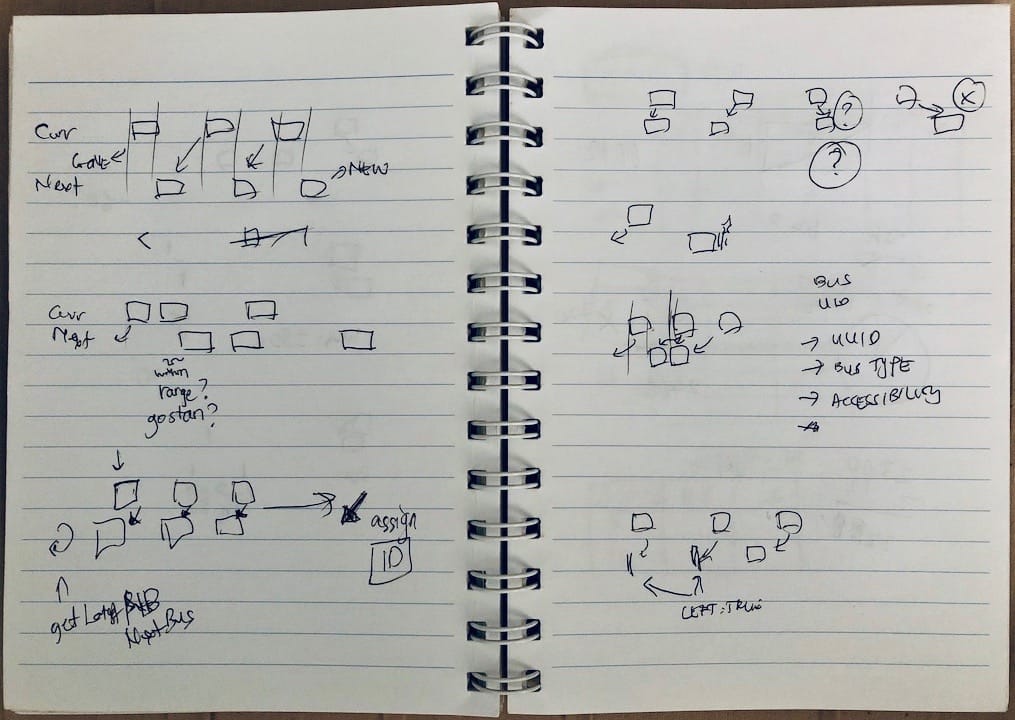 Curr
GONE
Next
NEW
Curr
Next
within
range?
gostan?
assign
ID
get
Next Bus
?
X
?
BUS
UUID
BUS TYPE
ACCESSIBILITY
LEFT: TRUE